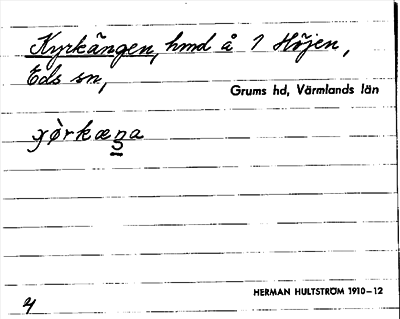 Kyrkängen, hmd å 1 Höjen,
Eds sn,
Grums hd, Värmlands län
HERMAN HULTSTRÖM 1910–12